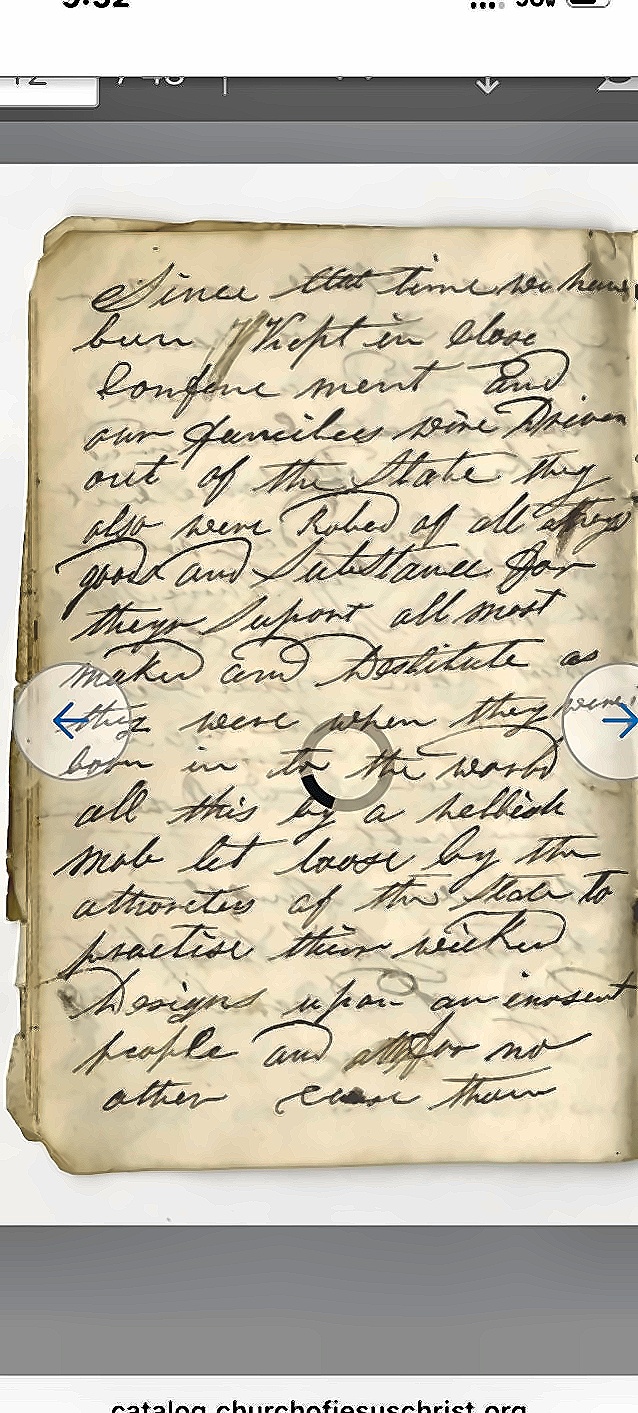 Since that time we have
bun Kept in Close
Confine ment And
our families wire Driven
out of the State they
also were Robed of all they
goods and Substance for
theyr Suport all most
naked and Destitute as
they were when they were
born in to the world
all this by a hellish
mob let loose by the
athoreties of the State to
practise thier wicked
Designs upon an inosent
people and for no
other cause than
catalog.churchofjesuschrist.org